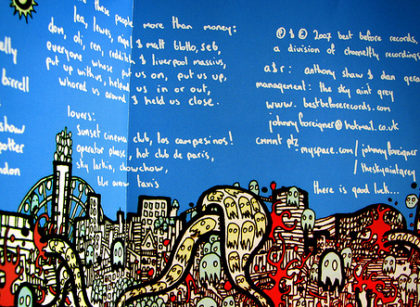 these people more than money:
lea, lewis, & matt seb,
don, oli, ren, reddish, & liverpool massive,
everyone whose put us on, put us up,
put up with us, helped us in or out,
whored us around & held us close.
lovers:
sunset cinema club, los campesinos!
operator please, hot club de paris,
sky larkin, chowchow,
the arrow taxis
birrell
shaw
potter
℗ & © 2007 best before records,
a division of channelfly recordings
a&r: anthony shaw & dan
management: the sky aint grey
www.bestbeforerecords.com
johnnyforeigner@hotmail.co.uk
cmmnt plz
myspace.com/johnnyforeigner
/theskyaintgrey
there is good luck...